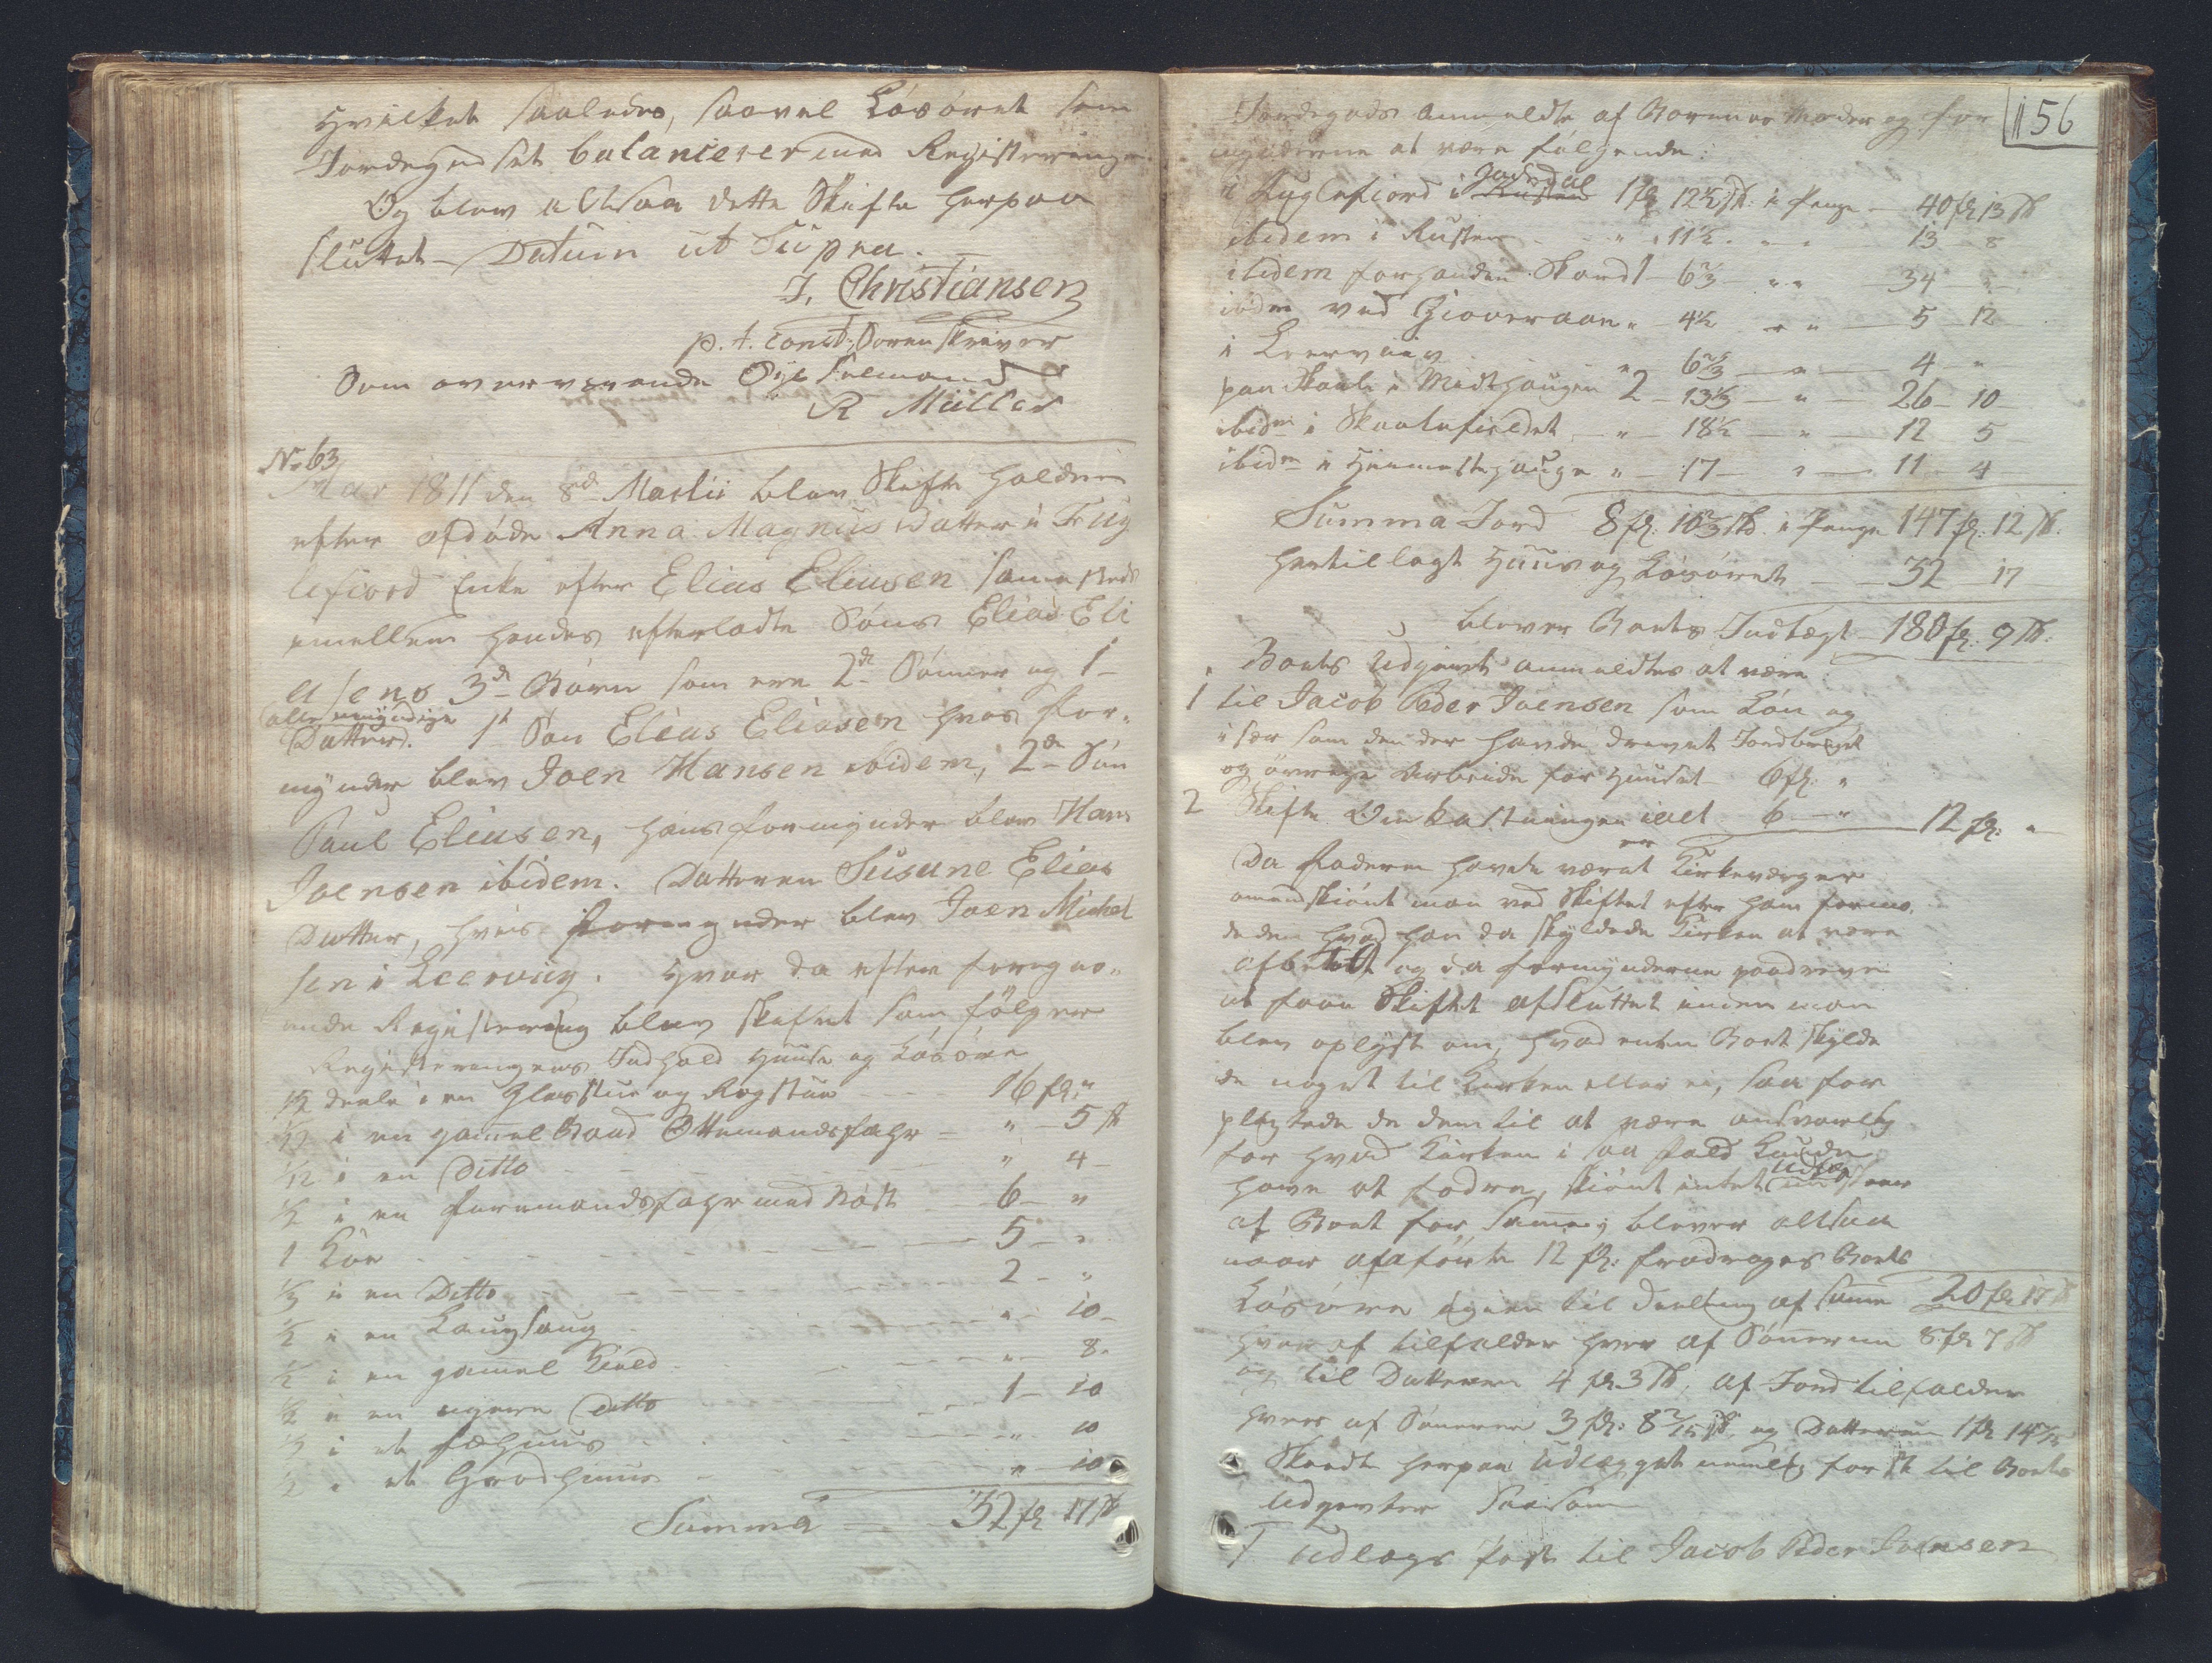 Hvilket saaledes, saavel Løsøret som
Jordegodset balancerer med Registeringen
Og blev altsaa dette Skifte herpaa
sluttet Datum ut Supra.
J. Christiansen
p. t. const. Sorenskriver
Som overværende
R Müller
No 63
Aar 1811 den 8de Martii blev Skifte holden
efter afdøde Anna Magnus Datter i Fug
lefiord Enke efter Elias Eliasen sammesteds
imellem hendes efterladte Søns Elias Eli
asens 3de Børn som ere 2de Sønner og 1
alle umyndige
Datter. 1te Søn Elias Eliasen hvis For-
mynder blev Joen Hansen ibidem, 2den Søn
Paul Eliasen, hans Formynder blev Hans
Joensen ibidem. Datteren Susanne Elias
Datter, hvis Formynder blev Joen Michel
sen i Leervig. Hvor da efter foregaa-
ende Registering blev skiftet som følger
Registeringens Indhold Huuse og Løsøre
1/2 deele i en Glasstue og Rogstue 16 fl: "
1/12 i en gamel Baad Ottemandsfahr " 5 sk
1/12 i en Ditto " 4
1/2 i en Firemandsfahr med Nøst 6 "
1 Koe 5 "
1/3 i en Ditto 2 "
1/2 i en Langsaug " 10
1/2 i en gamel Kield " 8
1/2 i en nyere Ditto 1 10
1/2 i et Fæhuus " 10
1/2 i et Grødhuus " 10
Summa 32 fl 17 sk
156
Jordegods anmeldte af Børnenes Moder og For
mynderne at være følgende:
i Fuglefiord i 1 fl 12 1/2 sk: i Penge 40 fl 13 sk
ibidem i Rusten " 11 1/2 " " 13 8
ibidem forhanden Skard 1 6 2/3 " " 34 "
ibidem ved Gioveraaen " 4 1/2 " " 5 12
i Leervig " 6 2/3 " 4 "
paa Skaale i Midthaugen 2 13 1/3 " 26 10
ibidm i Skaalefieldet " 18 1/2 " 12 5
ibidm i Heimestehauge " 17 " 11 4
Summa Jord 8 fl: 10 2/3 sk. i Penge 147 fl: 12 sk.
hertillagt Huus og Løsøret 32 17
bliver Boets Indtægt 180 fl: 9 sk:
Boets Udgivt anmeldtes at være
1 til Jacob Peder Joensen som Løn og
især som den der havde drevet Jordbruget
og øvrige Arbeide for Huuset 6 fl: "
2 Skifte Omkostningen ialt 6 " 12 fl: "
Da Faderen havde været Kirkeværger
omendskiønt man ved Skiftet efter ham formo-
deden hvad han da skyldede Kirken at være
afbetalt og da Formynderne paadreve
at faae Skiftet afsluttet inden man
blev oplyst om, hvad enten Boet skylde
de noget til Kirken eller ei, saa for
pligtede de dem til at være ansvarlig
for hvad Kirken i saa Fald kunde
have at fodre, skiønt intet udlæg
af Boet for Samme; bliver altsaa
naar anførte 12 fl: fradrages Boets
Løsøre igien til Deeling af Samme 20 fl 17 sk
hvoraf tilfalder hver af Sønnerne 8 fl 7 sk
og til Datteren 4 fl 3 sk, af Jord tilfalder
hver af Sønnerne 3 fl: 8 2/15 sk og Datteren 1 fl 14
Skeedte herpaa Udlægget nemlig først til Boets
Udgivter saasom
1 Udlægs Post til Jacob Peder Joensen